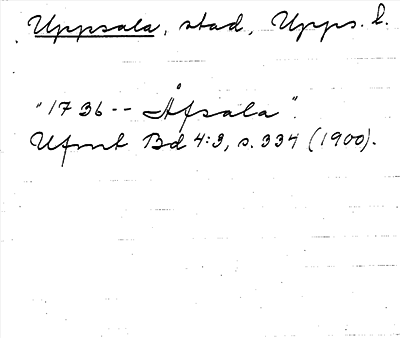 Uppsala, stad, Upps. l.
"1736-- Åfsala".
Ufmt Bd 4:3, s. 334 (1900).